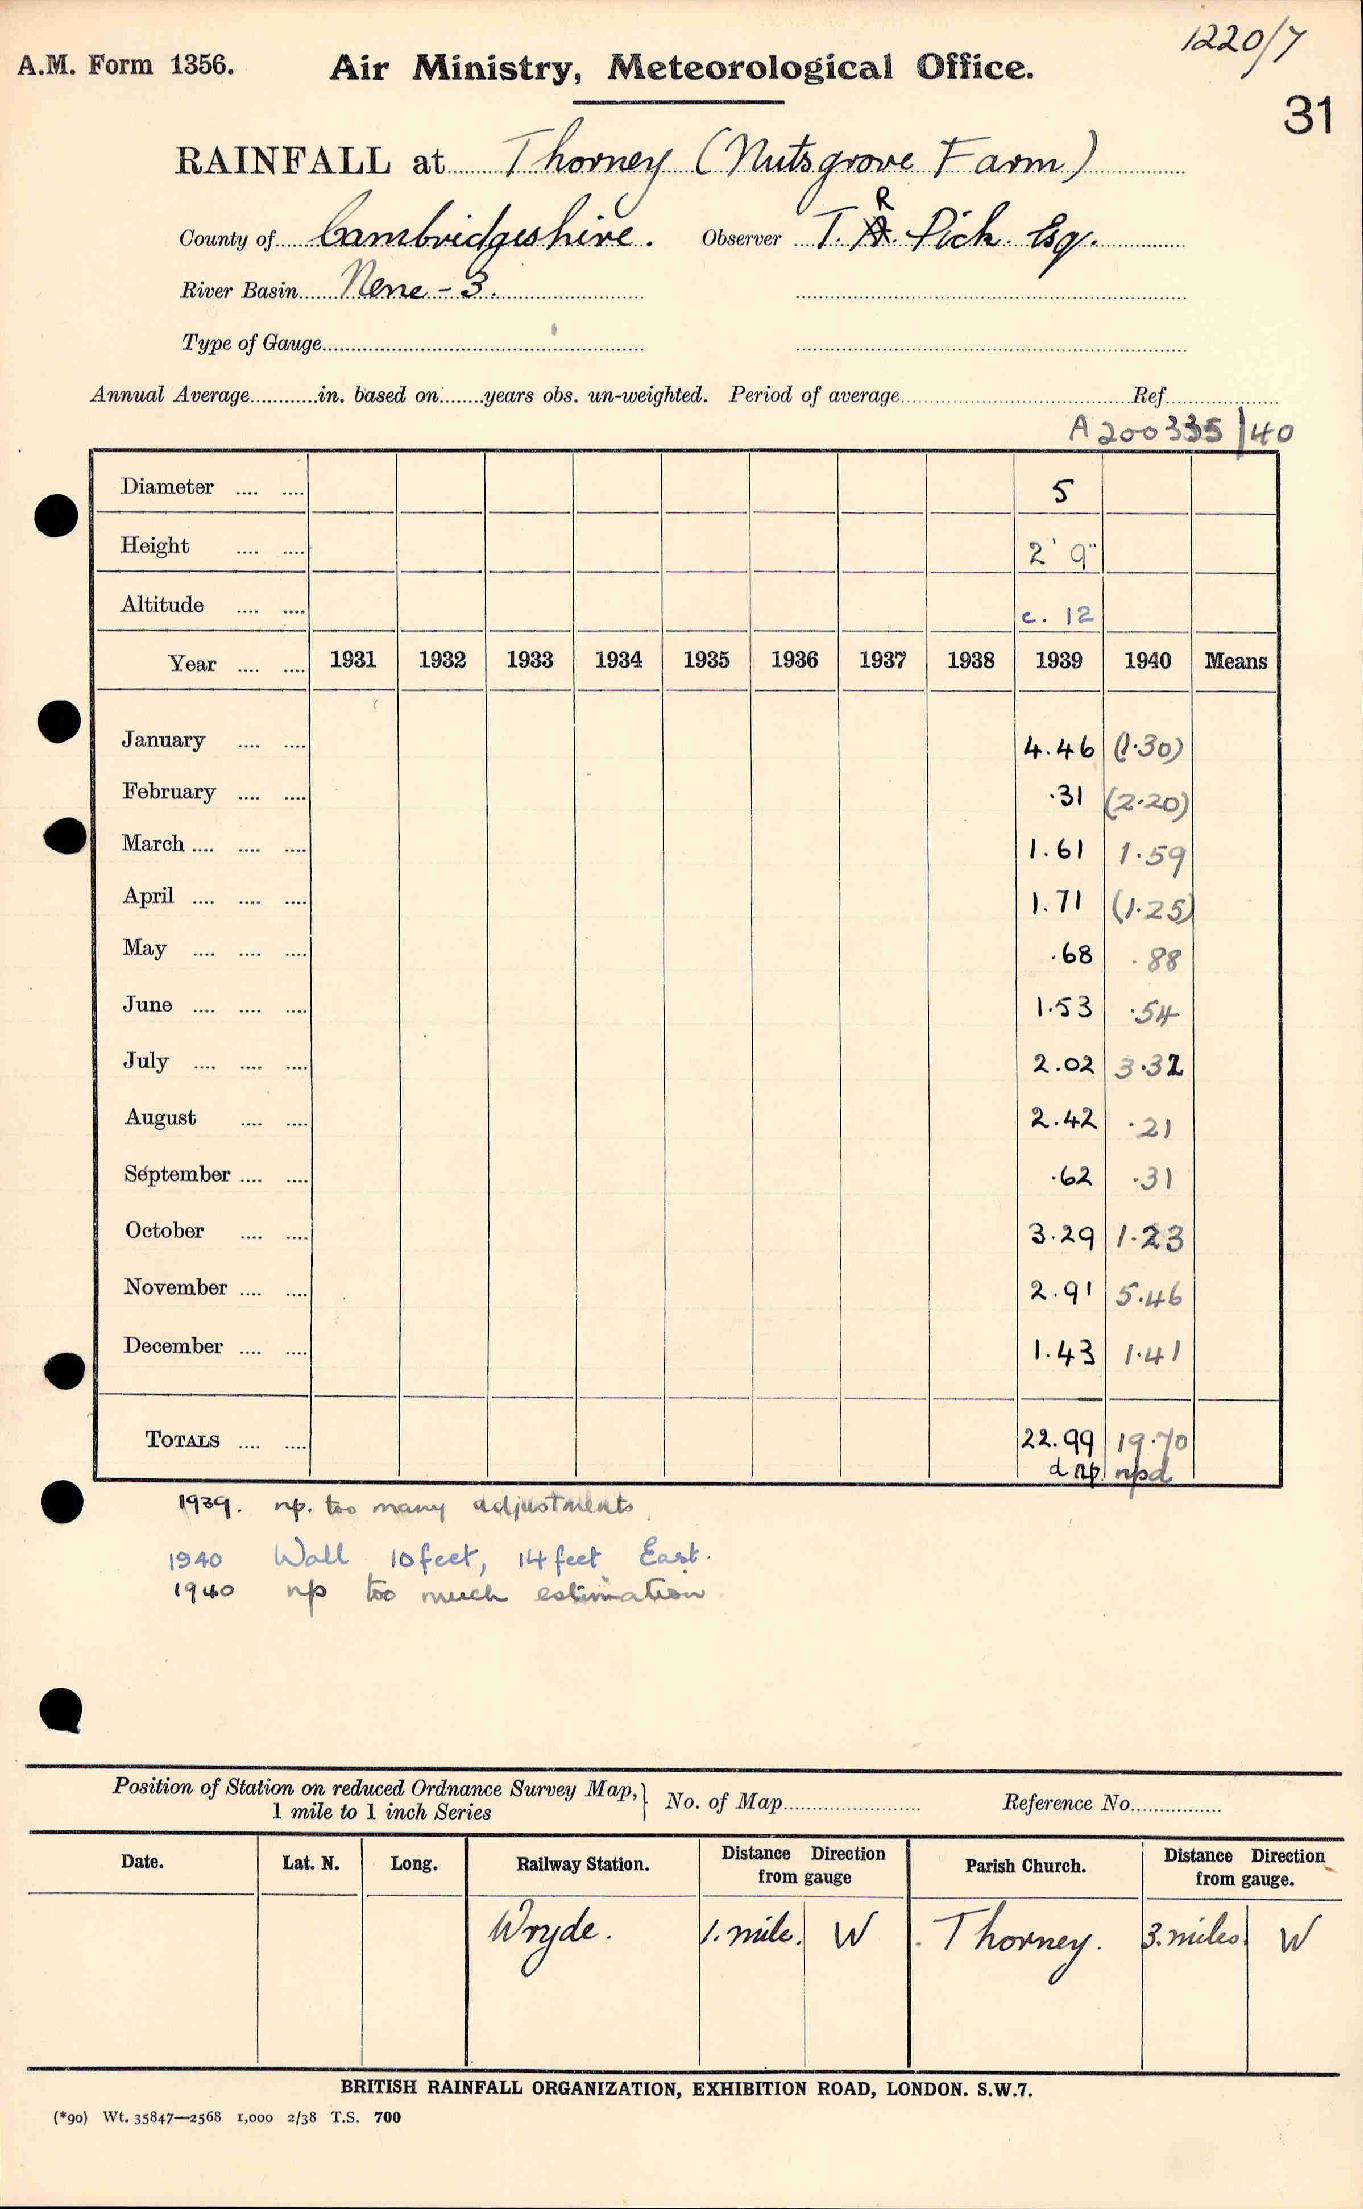 1220/7
A.M. Form 1356. Air Ministry, Meteorological Office.
31
RAINFALL at Thorney (Nutsgrove Farm)
R
County of Cambridgeshire. Observer T. A. Pick Esq.
River Basin Nene - 3.
Type of Gauge
Annual Average in. based on years obs. un-weighted. Period of average Ref
A200335/40
Diameter 5
Height 2' 9"
Altitude c. 12
Year 1931 1932 1933 1934 1935 1936 1937 1938 1939 1940 Means
January 4.46 (1.30)
February .31 (2.20)
March 1.61 1.59
April 1.71 (1.25)
May .68 .88
June 1.53 .54
July 2.02 3.32
August 2.42 .21
September .62 .31
October 3.29 1.23
November 2.91 5.46
December 1.43 1.41
TOTALS 22.99 19.70
d np. npd
1939. np. too many adjustments
1940 Wall 10 feet, 14 feet East.
1940 np too much estimation.
Position of Station on reduced Ordnance Survey Map,} No. of Map Reference No.
1 mile to 1 inch Series
Date. Lat. N. Long. Railway Station. Distance Direction from gauge Parish Church. Distance Direction from gauge.
Wryde. 1. mile. W Thorney. 3. miles. W
BRITISH RAINFALL ORGANIZATION, EXHIBITION ROAD, LONDON. S.W.7.
(*90) Wt. 35847—2568 1,000 2/38 T.S. 700